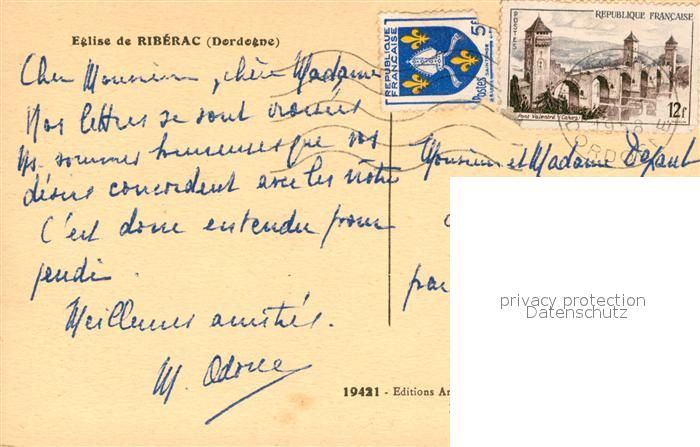 Eglise de RIBÉRAC (Dordogne)
Cher Monsieur, chère Madame
Nos lettres se sont croisées
Ns. sommes heureuses que vos
désirs concordent avec les nôtres
C'est donc entendu pour
jeudi.
Meilleures amitiés.
M. Odone
REPUBLIQUE FRANÇAISE
5F
Postes
REPUBLIQUE FRANÇAISE
POSTES
Pont Valentré (Cahors)
12F
DORDOGNE
Monsieur et Madame
par
privacy protection
Datenschutz
19421 - Editions